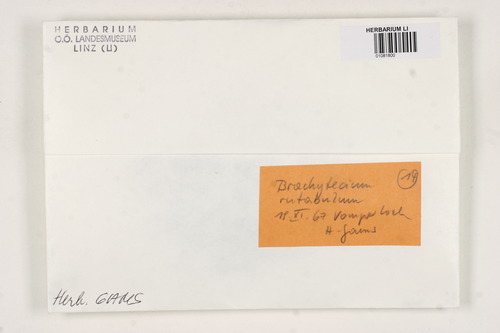 HERBARIUM
O.Ö. LANDESMUSEUM
LINZ (LI)
HERBARIUM LI
Brachytecium
rutabulum
18 VI. 67 Vomperloch
H. Gams
Herb. GAMS